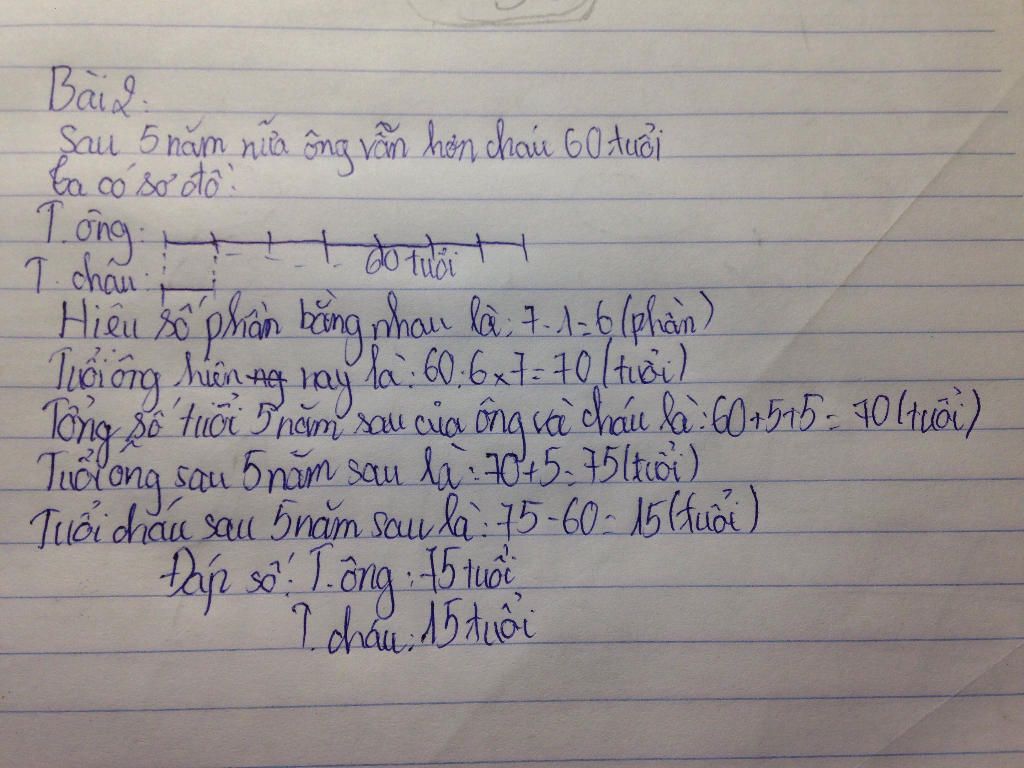 Bài 2:
Sau 5 năm nữa ông vẫn hơn cháu 60 tuổi
Ta có sơ đồ:
T. ông:
60 tuổi
T. cháu:
Hiệu số phần bằng nhau là: 7-1=6 (phần)
Tuổi ông hiện ng nay là: 60:6x7=70 (tuổi)
Tổng số tuổi 5 năm sau của ông và cháu là: 60+5+5= 70 (tuổi)
Tuổi ông sau 5 năm sau là: 70+5=75 (tuổi)
Tuổi cháu sau 5 năm sau là: 75-60= 15 (tuổi)
Đáp số: T. ông: 75 tuổi
T. cháu: 15 tuổi